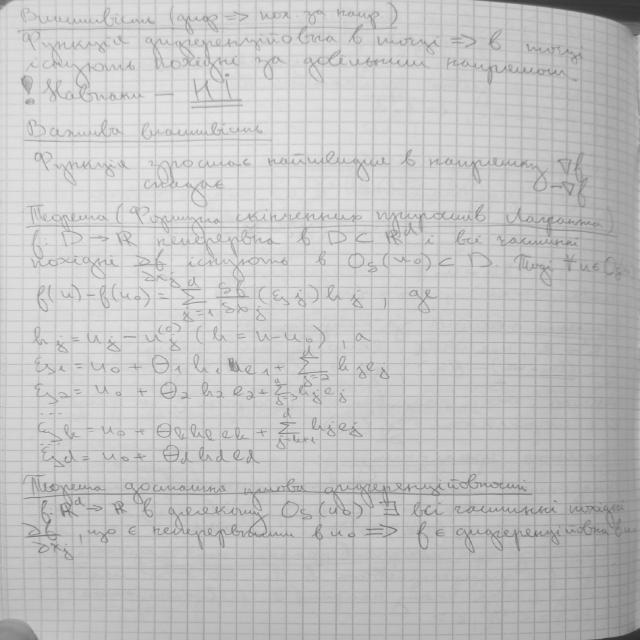 Властивість (диф => пох. за напр)
Функція диференційовна в точці => в точці
існують похідні за довільним напрямком.
! Навпаки — НІ
Важлива властивість
Функція зростає найшвидше в напрямку ∇f
спадає -∇f
Теорема (Формула скінченних приростів Лагранжа)
f: D → R неперервна в D ⊂ R^d і всі частинні
похідні ∂f/∂x_j існують в O_δ(u_0) ⊂ D. Тоді ∀ u ∈ O_δ
f(u) - f(u_0) = Σ_{j=1}^{d} ∂f/∂x_j (ξ_j) h_j , де
h_j = u_j - u_j^{(0)} (h = u - u_0), а
ξ_1 = u_0 + Θ_1 h_1 e_1 + Σ_{j=2}^{d} h_j e_j
ξ_2 = u_0 + Θ_2 h_2 e_2 + Σ_{j=3}^{d} h_j e_j
...
ξ_k = u_0 + Θ_k h_k e_k + Σ_{j=k+1}^{d} h_j e_j
ξ_d = u_0 + Θ_d h_d e_d
Теорема достатня умова диференційовності
f: R^d → R в деякому O_δ(u_0) ∃ всі частинні похідні
∂f/∂x_j, що є неперервними в u_0 => f є диференційовна в